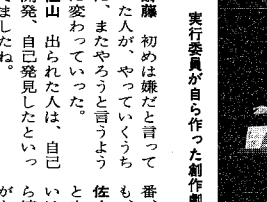 実行委員が自ら作った創作劇
藤　初めは嫌だと言って
た人が、やっていくうち
、またやろうと言うよう
に変わっていった。
山　出られた人は、自己
開発、自己発見したといっ
てましたね。
番
も、
佐
と
い